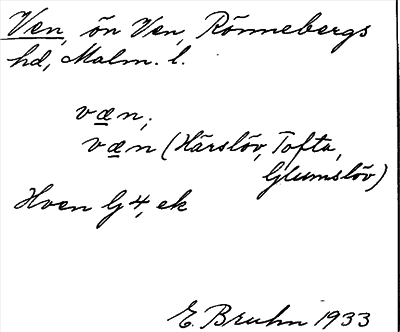 Ven, ön Ven, Rönnebergs
hd, Malm. l.
væn;
væn (Härslöv, Tofta,
Glumslöv)
Hven G 4, ek
E. Bruhn 1933